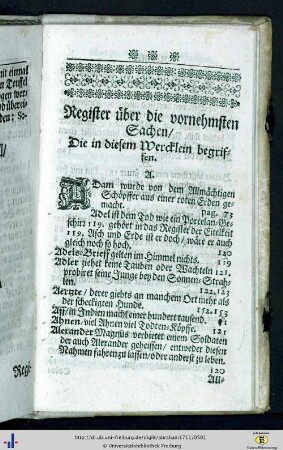 mit einmal
Teuffel
gen wer-
den: So-
Register über die vornehmsten
Sachen/
Die in diesem Wercklein begrif-
fen.
A.
ADam wurde von dem Allmächtigen
Schöpffer aus einer roten Erden ge-
macht. pag. 73
Adel ist dem Tod wie ein Porcelan-Ge-
schirr 119. gehört in das Register der Eitelkeit
119. Asch und Erde ist er doch/ wäre er auch
gleich noch so hoch. 120
Adels-Brieff gelten im Himmel nichts. 119
Adler ziehet keine Tauben oder Wachteln 121.
probiret seine Junge bey den Sonnen-Strah-
len. 122.123
Aertzte/ derer giebts an manchem Ort mehr als
der scheckigten Hunde. 152.153
Aff/ in Indien machts einer hundert tausend.
Ahnen/ viel Ahnen viel Todten-Köpffe. 121
Alexander Magnus verbietet einem Soldaten
der auch Alexander geheissen/ entweder diesen
Nahmen fahren zu lassen/ oder anderst zu leben.
120
All-
Regi-
http://dl.ub.uni-freiburg.de/diglit/abraham1711/0501
© Universitätsbibliothek Freiburg